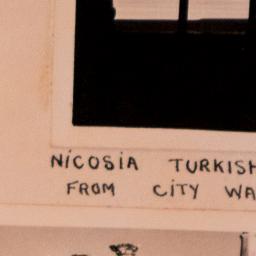 NICOSIA TURKISH
FROM CITY WA